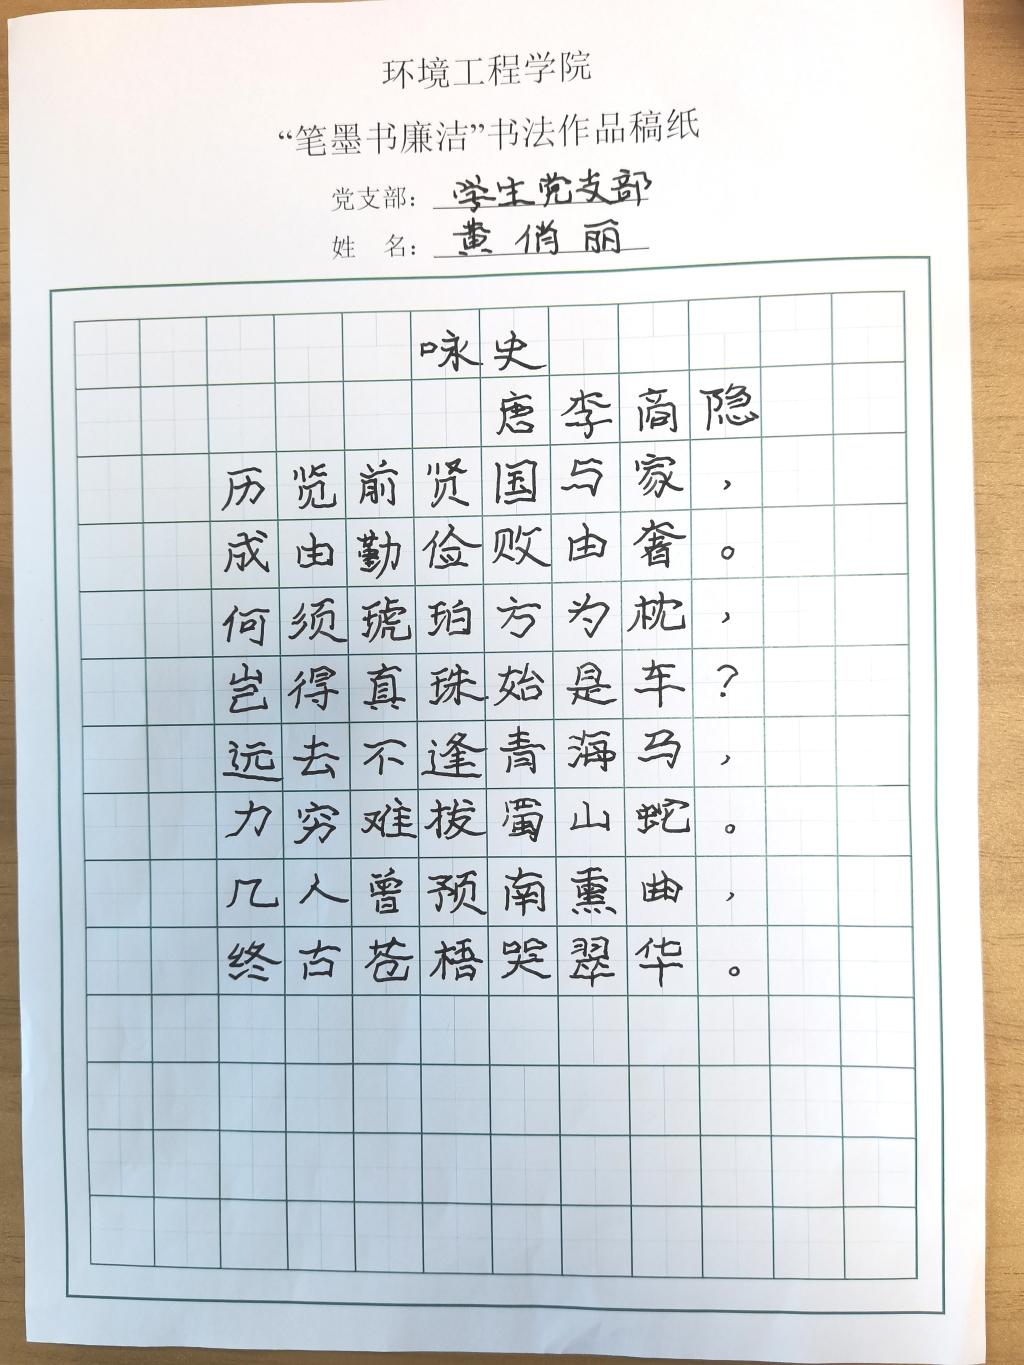 环境工程学院
“笔墨书廉洁”书法作品稿纸
党支部：学生党支部
姓 名：黄俏丽
咏史
唐李商隐
历览前贤国与家，
成由勤俭败由奢。
何须琥珀方为枕，
岂得真珠始是车？
远去不逢青海马，
力穷难拔蜀山蛇。
几人曾预南熏曲，
终古苍梧哭翠华。